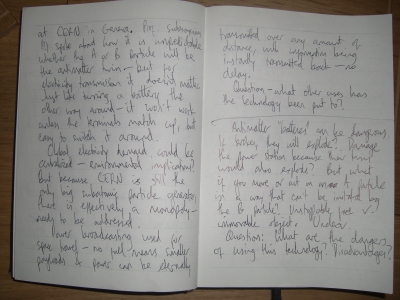 at CERN in Geneva. Prof. Subramanyam
spoke about how it is unpredictable
whether the A or B particle will be
the antimatter twin – but for
electricity transmission it doesn't matter
just like turning a battery the
other way around – it won't work
unless the terminals match up, but
easy to switch it around.
Global electricity demand could be
centralised – environmental implications?
But because CERN is still the
only big subatomic particle generator,
there is effectively a monopoly –
needs to be addressed.
Power broadcasting used for
space travel – no fuel means smaller
payloads & power can be eternally
transmitted over any amount of
distance, with separation being
instantly transmitted back – no
delay.
Question – what other uses has
the technology been put to?
Antimatter "batteries" can be dangerous.
If broken, they will explode? Damage
the power station because their twin
would also explode? But what if
you move or act on an A particle
in a way that can't be imitated by
the B particle? Unstoppable force v.
immovable object. Unclear
Question: What are the dangers
of using this technology? Disadvantages?